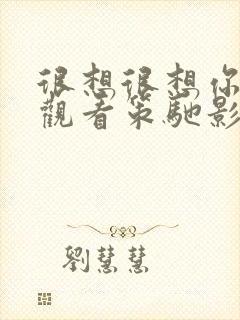 很想很想你
觀看策馳影
劉慧慧